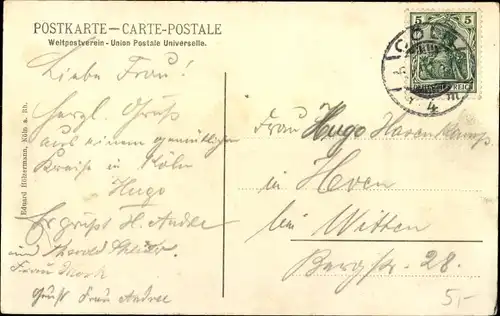 POSTKARTE — CARTE-POSTALE
Weltpostverein - Union Postale Universelle.
Eduard Hölzermann, Köln a. Rh.
Liebe Frau!
Herzl. Gruß
aus einem gemütlichen
Kreise in Köln
Hugo
Er grüsst H. Andree
und
Frau
Gruß Frau Andree
5 5
DEUTSCHES REICH
CÖLN
4
Frau Hugo Havenkamp
in Heven
bei Witten
Bergstr. 28.
5,-